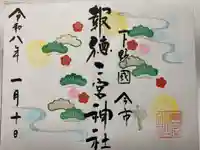 下野國 今市
報徳二宮神社
令和八年 一月十日